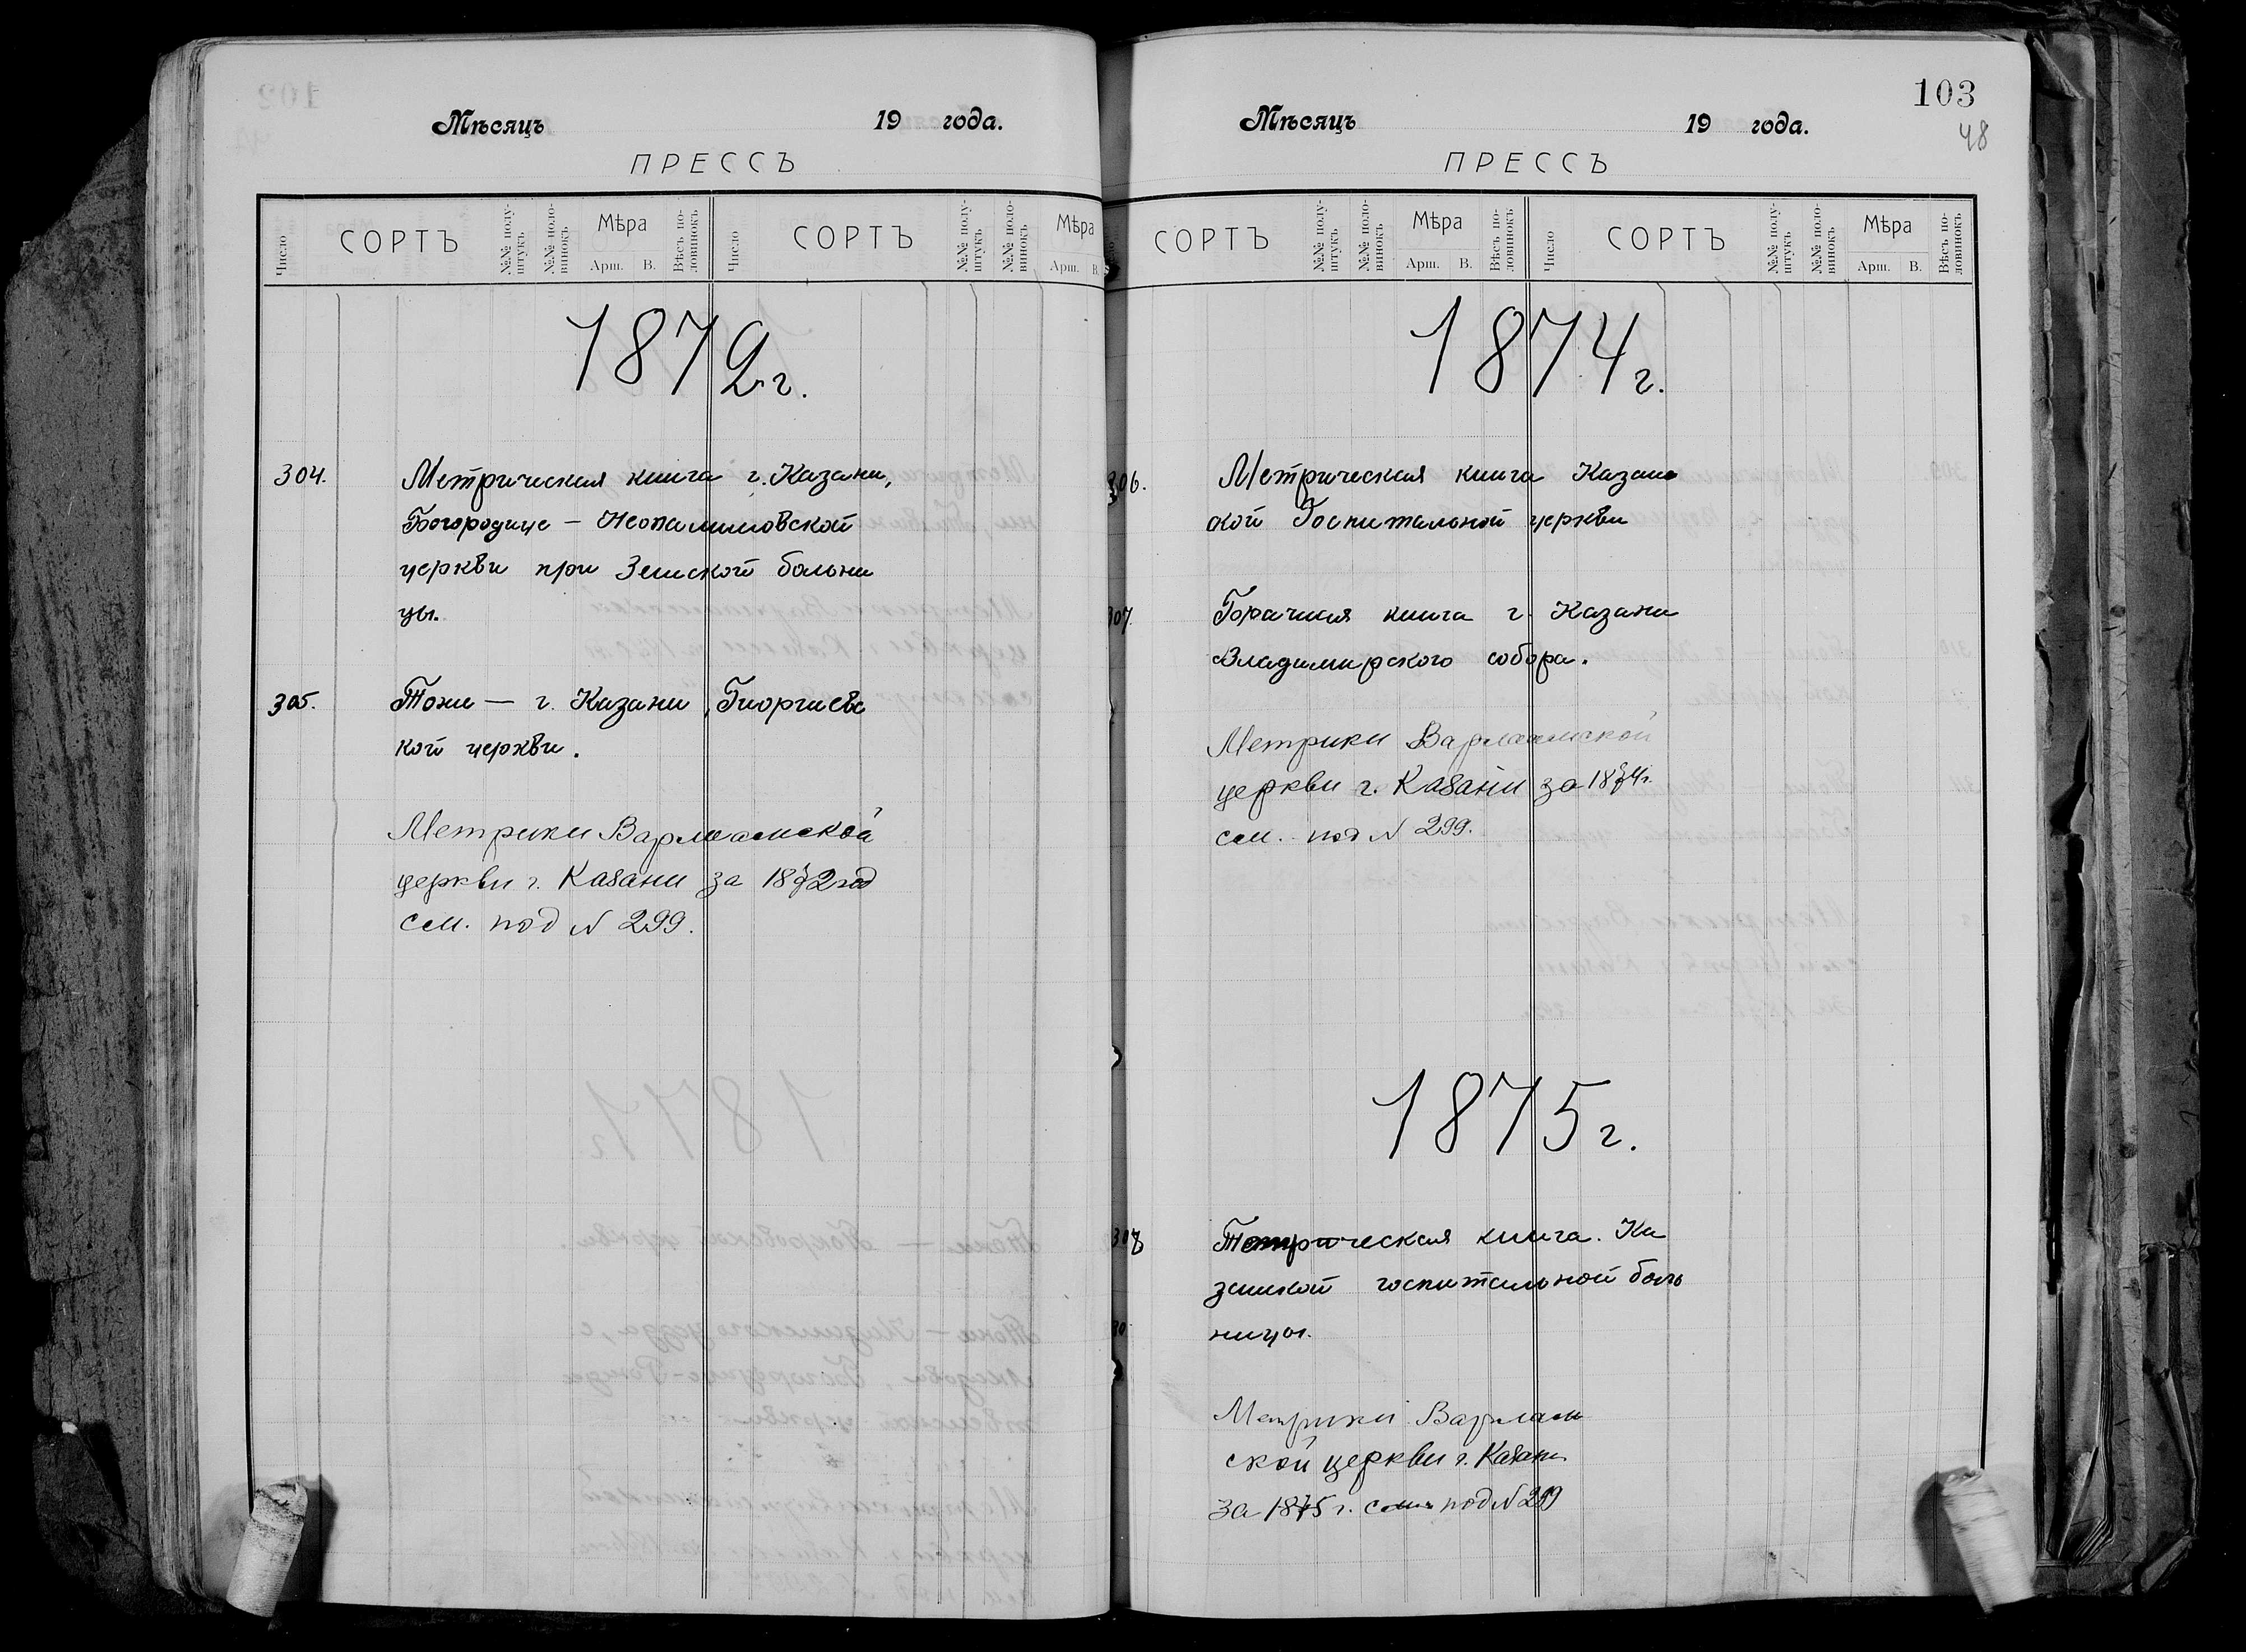 Мѣсяцъ 19 года.
ПРЕССЪ
Число СОРТЪ №№ полу-штукъ №№ поло-винокъ Мѣра Арш. В. Вѣсъ по-ловинокъ Число СОРТЪ №№ полу-штукъ №№ поло-винокъ Мѣра Арш. В.
1872 г.
304. Метрическая книга г. Казани,
Богородице – Неопалимовской
церкви при Земской больни
цы.
305. Тоже — г. Казани, Георгиевс
кой церкви.
Метрики Варлаамской
церкви г. Казани за 1872 год
см. под N 299.
103
48
Мѣсяцъ 19 года.
ПРЕССЪ
СОРТЪ №№ полу-штукъ №№ поло-винокъ Мѣра Арш. В. Вѣсъ по-ловинокъ Число СОРТЪ №№ полу-штукъ №№ поло-винокъ Мѣра Арш. В. Вѣсъ по-ловинокъ
1874 г.
306. Метрическая книга Казанс
кой Госпитальной церкви
307. Брачная книга г. Казани
Владимирского собора.
Метрики Варлаамской
церкви г. Казани за 1874 г.
см. под N 299.
1875 г.
308 Метрическая книга. Ка
занской госпитальной боль
ницы.
Метрики Варлаам
ской церкви г. Казани
за 1875 г. см. под N 299